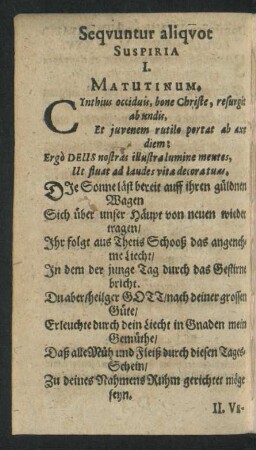 Seqvuntur aliqvot
SUSPIRIA
I.
MATUTINUM.
CYnthius occiduis, bone Christe, resurgit
ab undis,
Et juvenem rutilo portat ab axe
diem:
Ergò DEUS nostras illustra lumine mentes,
Ut fluat ad laudes vita decora tuas.
DIe Sonne läst bereit auff ihren güldnen
Wagen
Sich über unser Häupt von neuen wieder
tragen/
Ihr folgt aus Thetis Schooß das angeneh-
me Liecht/
In dem der junge Tag durch das Gestirne
bricht.
Du aber/heilger GOTT/nach deiner grossen
Güte/
Erleuchte durch dein Liecht in Gnaden mein
Gemüthe/
Daß alle Müh und Fleiß durch diesen Tages-
Schein/
Zu deines Nahmens Ruhm gerichtet möge
seyn.
II. VE-